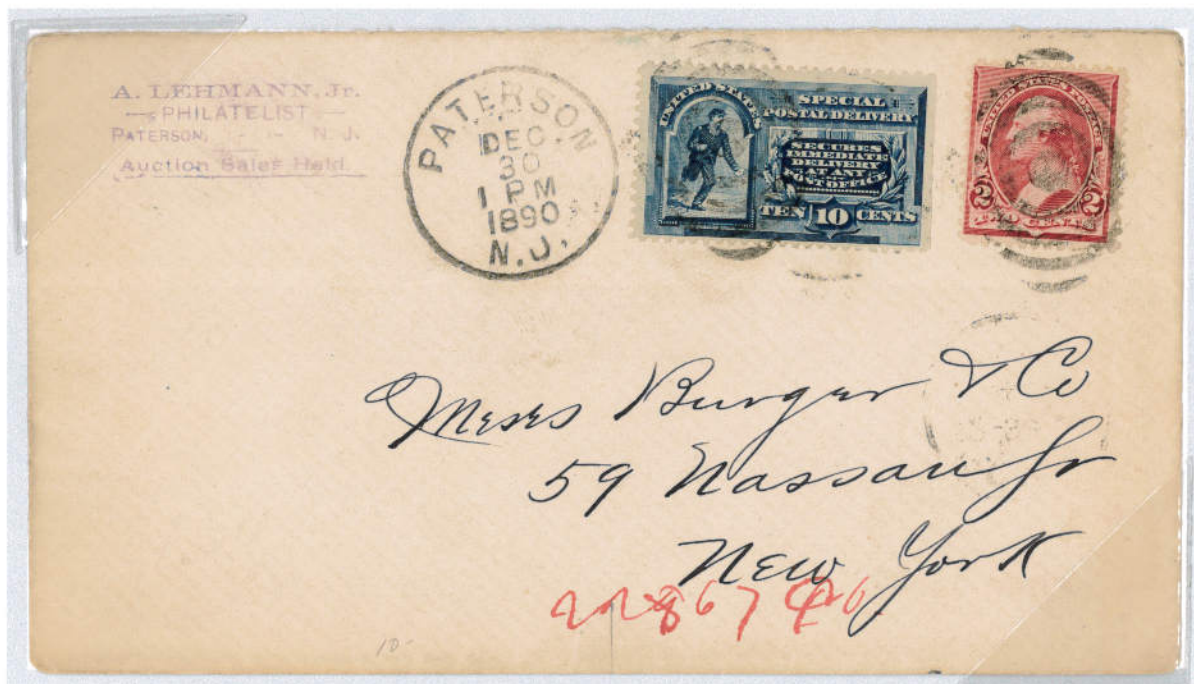 A. LEHMANN, Jr.
PHILATELIST
PATERSON, - - N. J.
Auction Sales Held.
PATERSON
DEC.
30
1 PM
1890
N.J.
UNITED STATES
SPECIAL
POSTAL DELIVERY
SECURES
IMMEDIATE
DELIVERY
AT ANY
POST OFFICE
TEN 10 CENTS
UNITED STATES POSTAGE
2 2
TWO CENTS
Mess Burger & Co
59 Nassau Sr
New York
10-